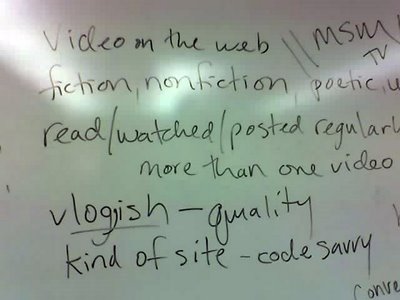 Video on the web // MSM /
TV
fiction, nonfiction, poetic,
read/watched/posted regularl
more than one video
vlogish - quality
kind of site - code savvy
conve